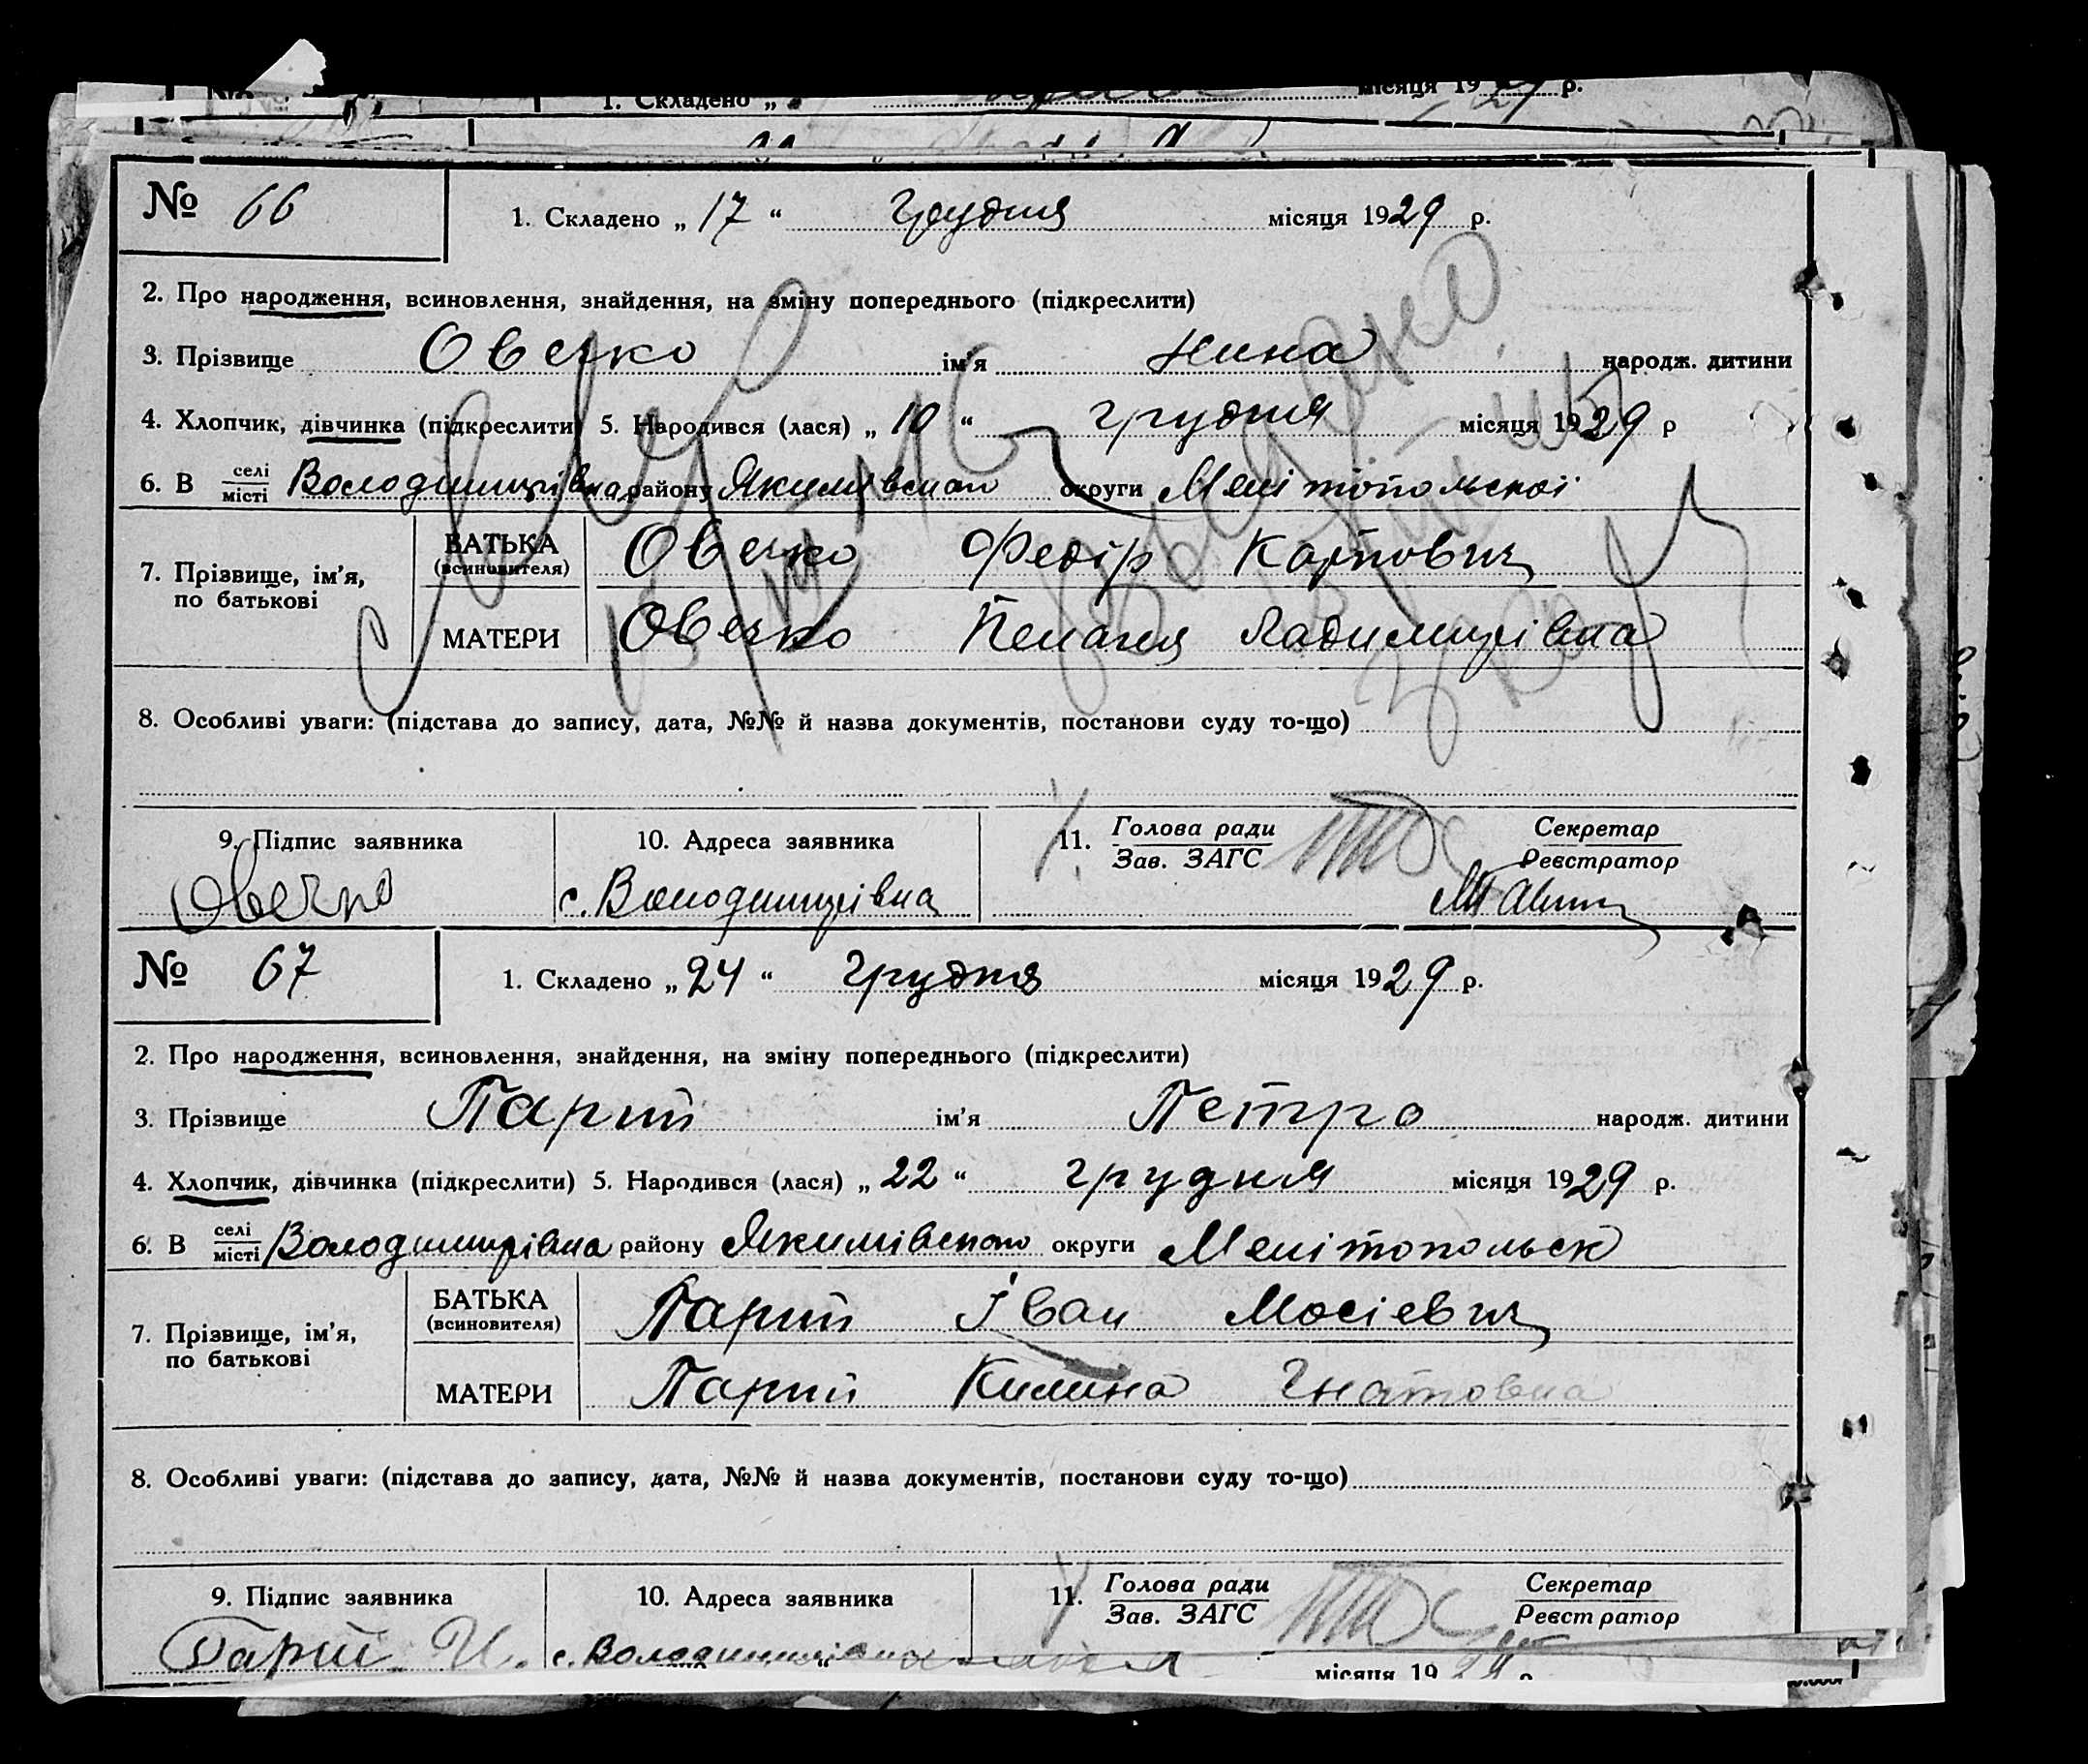 1. Складено „ місяця 1929 р.
№ 66 1. Складено „ 17 “ грудня місяця 1929 р.
2. Про народження, всиновлення, знайдення, на зміну попереднього (підкреслити)
3. Прізвище Овечко ім’я Нина народж. дитини
4. Хлопчик, дівчинка (підкреслити) 5. Народився (лася) „ 10 “ грудня місяця 1929 р
6. В селі/місті Володимирівна району Якимівського округи Мелітопольської
7. Прізвище, ім’я, по батькові
БАТЬКА (всиновителя) Овечко Федір Карпович
МАТЕРИ Овечко Пелагея Ладимирівна
8. Особливі уваги: (підстава до запису, дата, №№ й назва документів, постанови суду то-що)
9. Підпис заявника 10. Адреса заявника 11. Голова ради / Зав. ЗАГС Секретар / Реєстратор
Овечко с. Володимирівна
№ 67 1. Складено „ 24 “ грудня місяця 1929 р.
2. Про народження, всиновлення, знайдення, на зміну попереднього (підкреслити)
3. Прізвище Парий ім’я Петро народж. дитини
4. Хлопчик, дівчинка (підкреслити) 5. Народився (лася) „ 22 “ грудня місяця 1929 р.
6. В селі/місті Володимирівна району Якимівського округи Мелітопольськ
7. Прізвище, ім’я, по батькові
БАТЬКА (всиновителя) Парий Іван Мосієвич
МАТЕРИ Парий Килина Гнатовна
8. Особливі уваги: (підстава до запису, дата, №№ й назва документів, постанови суду то-що)
9. Підпис заявника 10. Адреса заявника 11. Голова ради / Зав. ЗАГС Секретар / Реєстратор
Парий И. с. Володимирівна
місяця 19